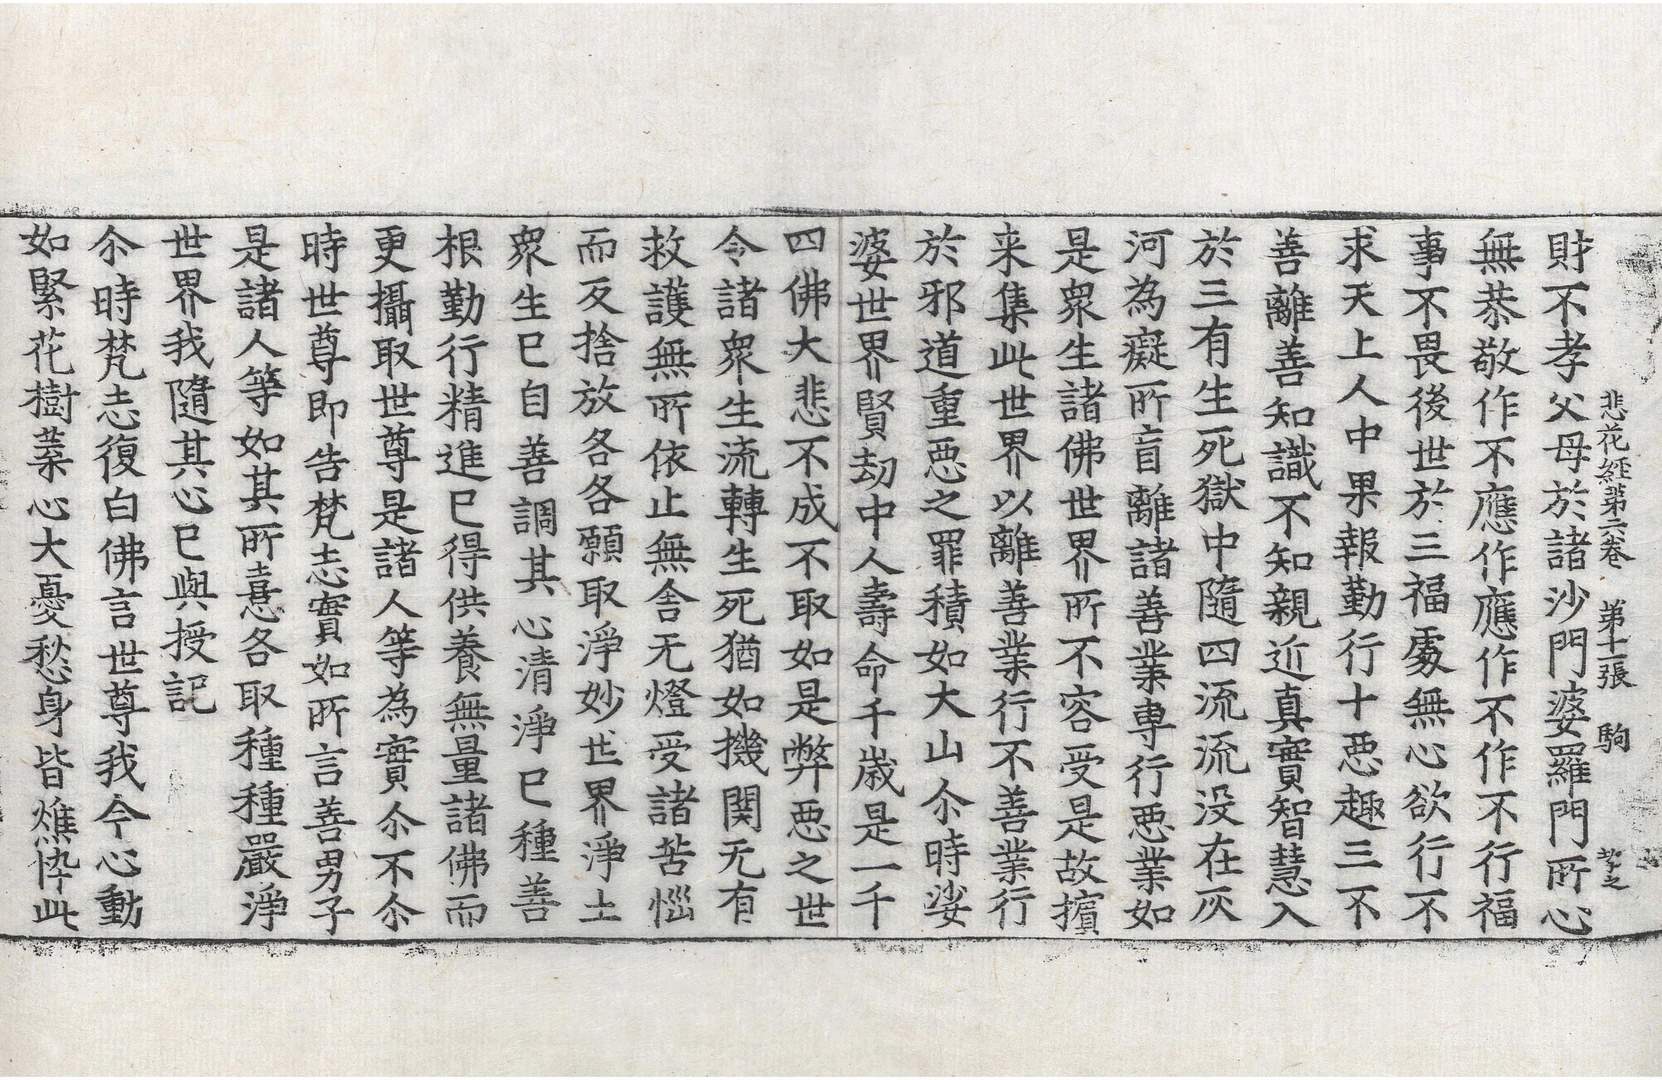 悲花經第六卷 第十一張 駒
財不孝父母於諸沙門婆羅門所心
無恭敬作不應作應作不作不行福
事不畏後世於三福處無心欲行不
求天上人中果報勤行十惡趣三不
善離善知識不知親近真實智慧入
於三有生死獄中隨四流流没在灰
河為癡所盲離諸善業専行惡業如
是衆生諸佛世界所不容受是故擯
来集此世界以離善業行不善業行
於邪道重惡之罪積如大山尒時娑
婆世界賢劫中人壽命千歲是一千
四佛大悲不成不取如是弊惡之世
令諸衆生流轉生死猶如機関无有
救護無所依止無舍无燈受諸苦惱
而反捨放各各願取淨妙世界淨土
衆生已自善調其心清淨已種善
根勤行精進已得供養無量諸佛而
更攝取世尊是諸人等為實尒不尒
時世尊即告梵志實如所言善男子
是諸人等如其所憙各取種種嚴淨
世界我隨其心已與授記
尒時梵志復白佛言世尊我今心動
如緊花樹葉心大憂愁身皆燋悴此